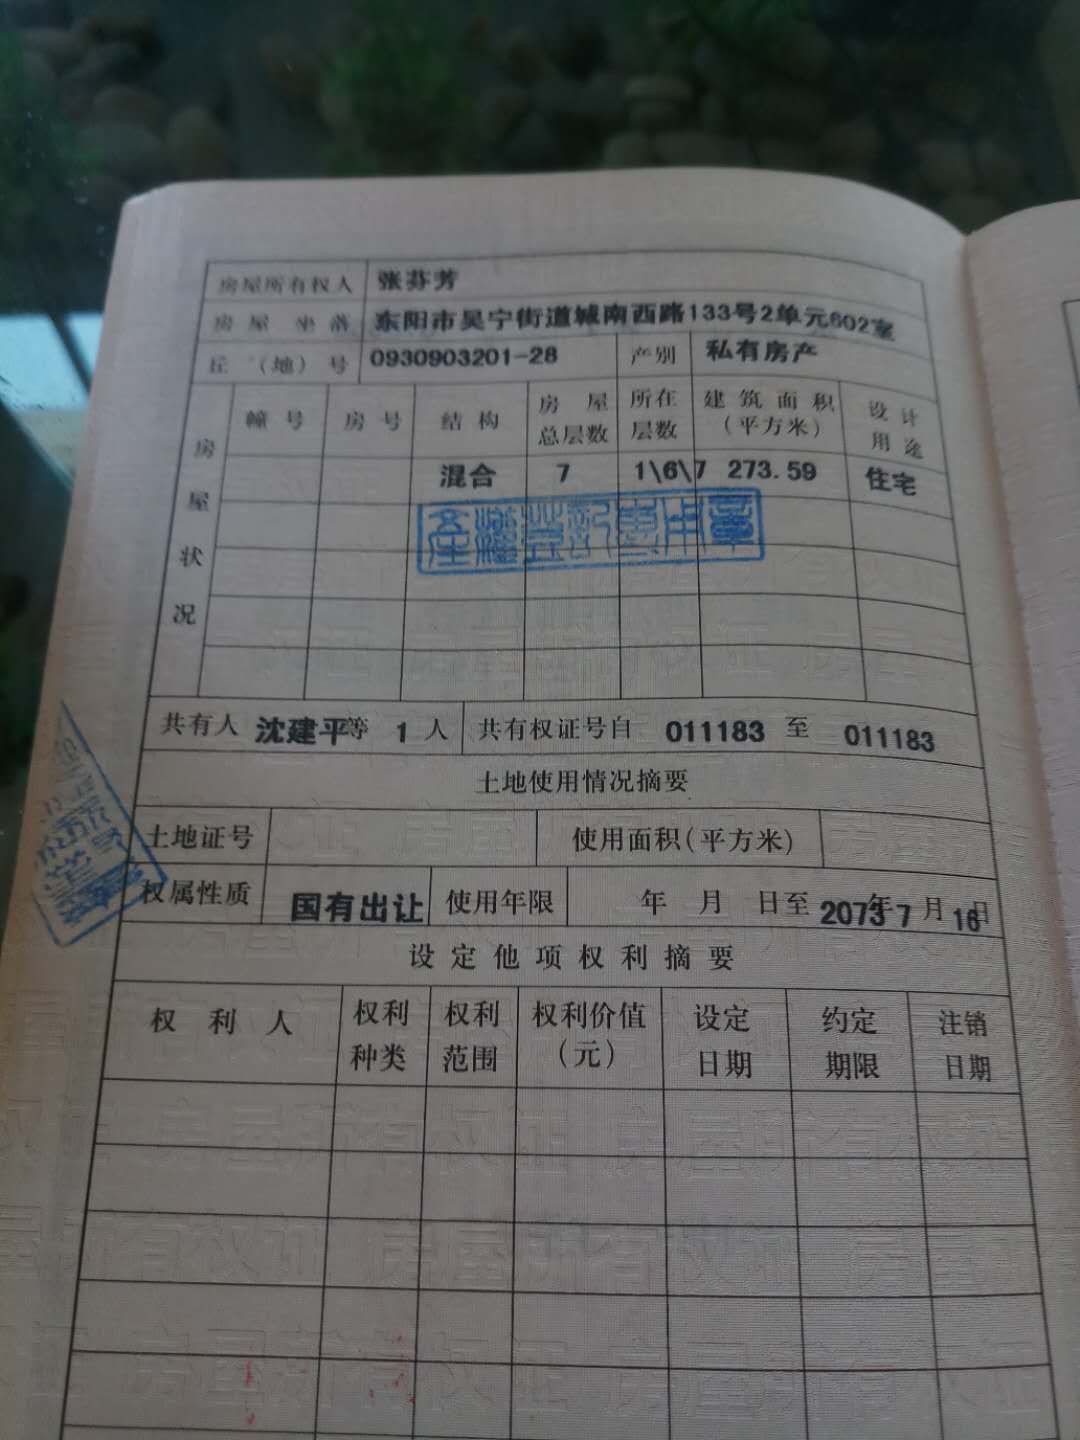 房屋所有权人 张芬芳
房屋坐落 东阳市吴宁街道城南西路133号2单元602室
丘(地)号 0930903201-28 产别 私有房产
房屋状况 幢号 房号 结构 房屋总层数 所在层数 建筑面积(平方米) 设计用途
混合 7 1\6\7 273.59 住宅
产权登记专用章
共有人 沈建平等 1 人 共有权证号自 011183 至 011183
土地使用情况摘要
土地证号 使用面积(平方米)
权属性质 国有出让 使用年限 年 月 日至 2073年7月16日
设定他项权利摘要
权利人 权利种类 权利范围 权利价值(元) 设定日期 约定期限 注销日期